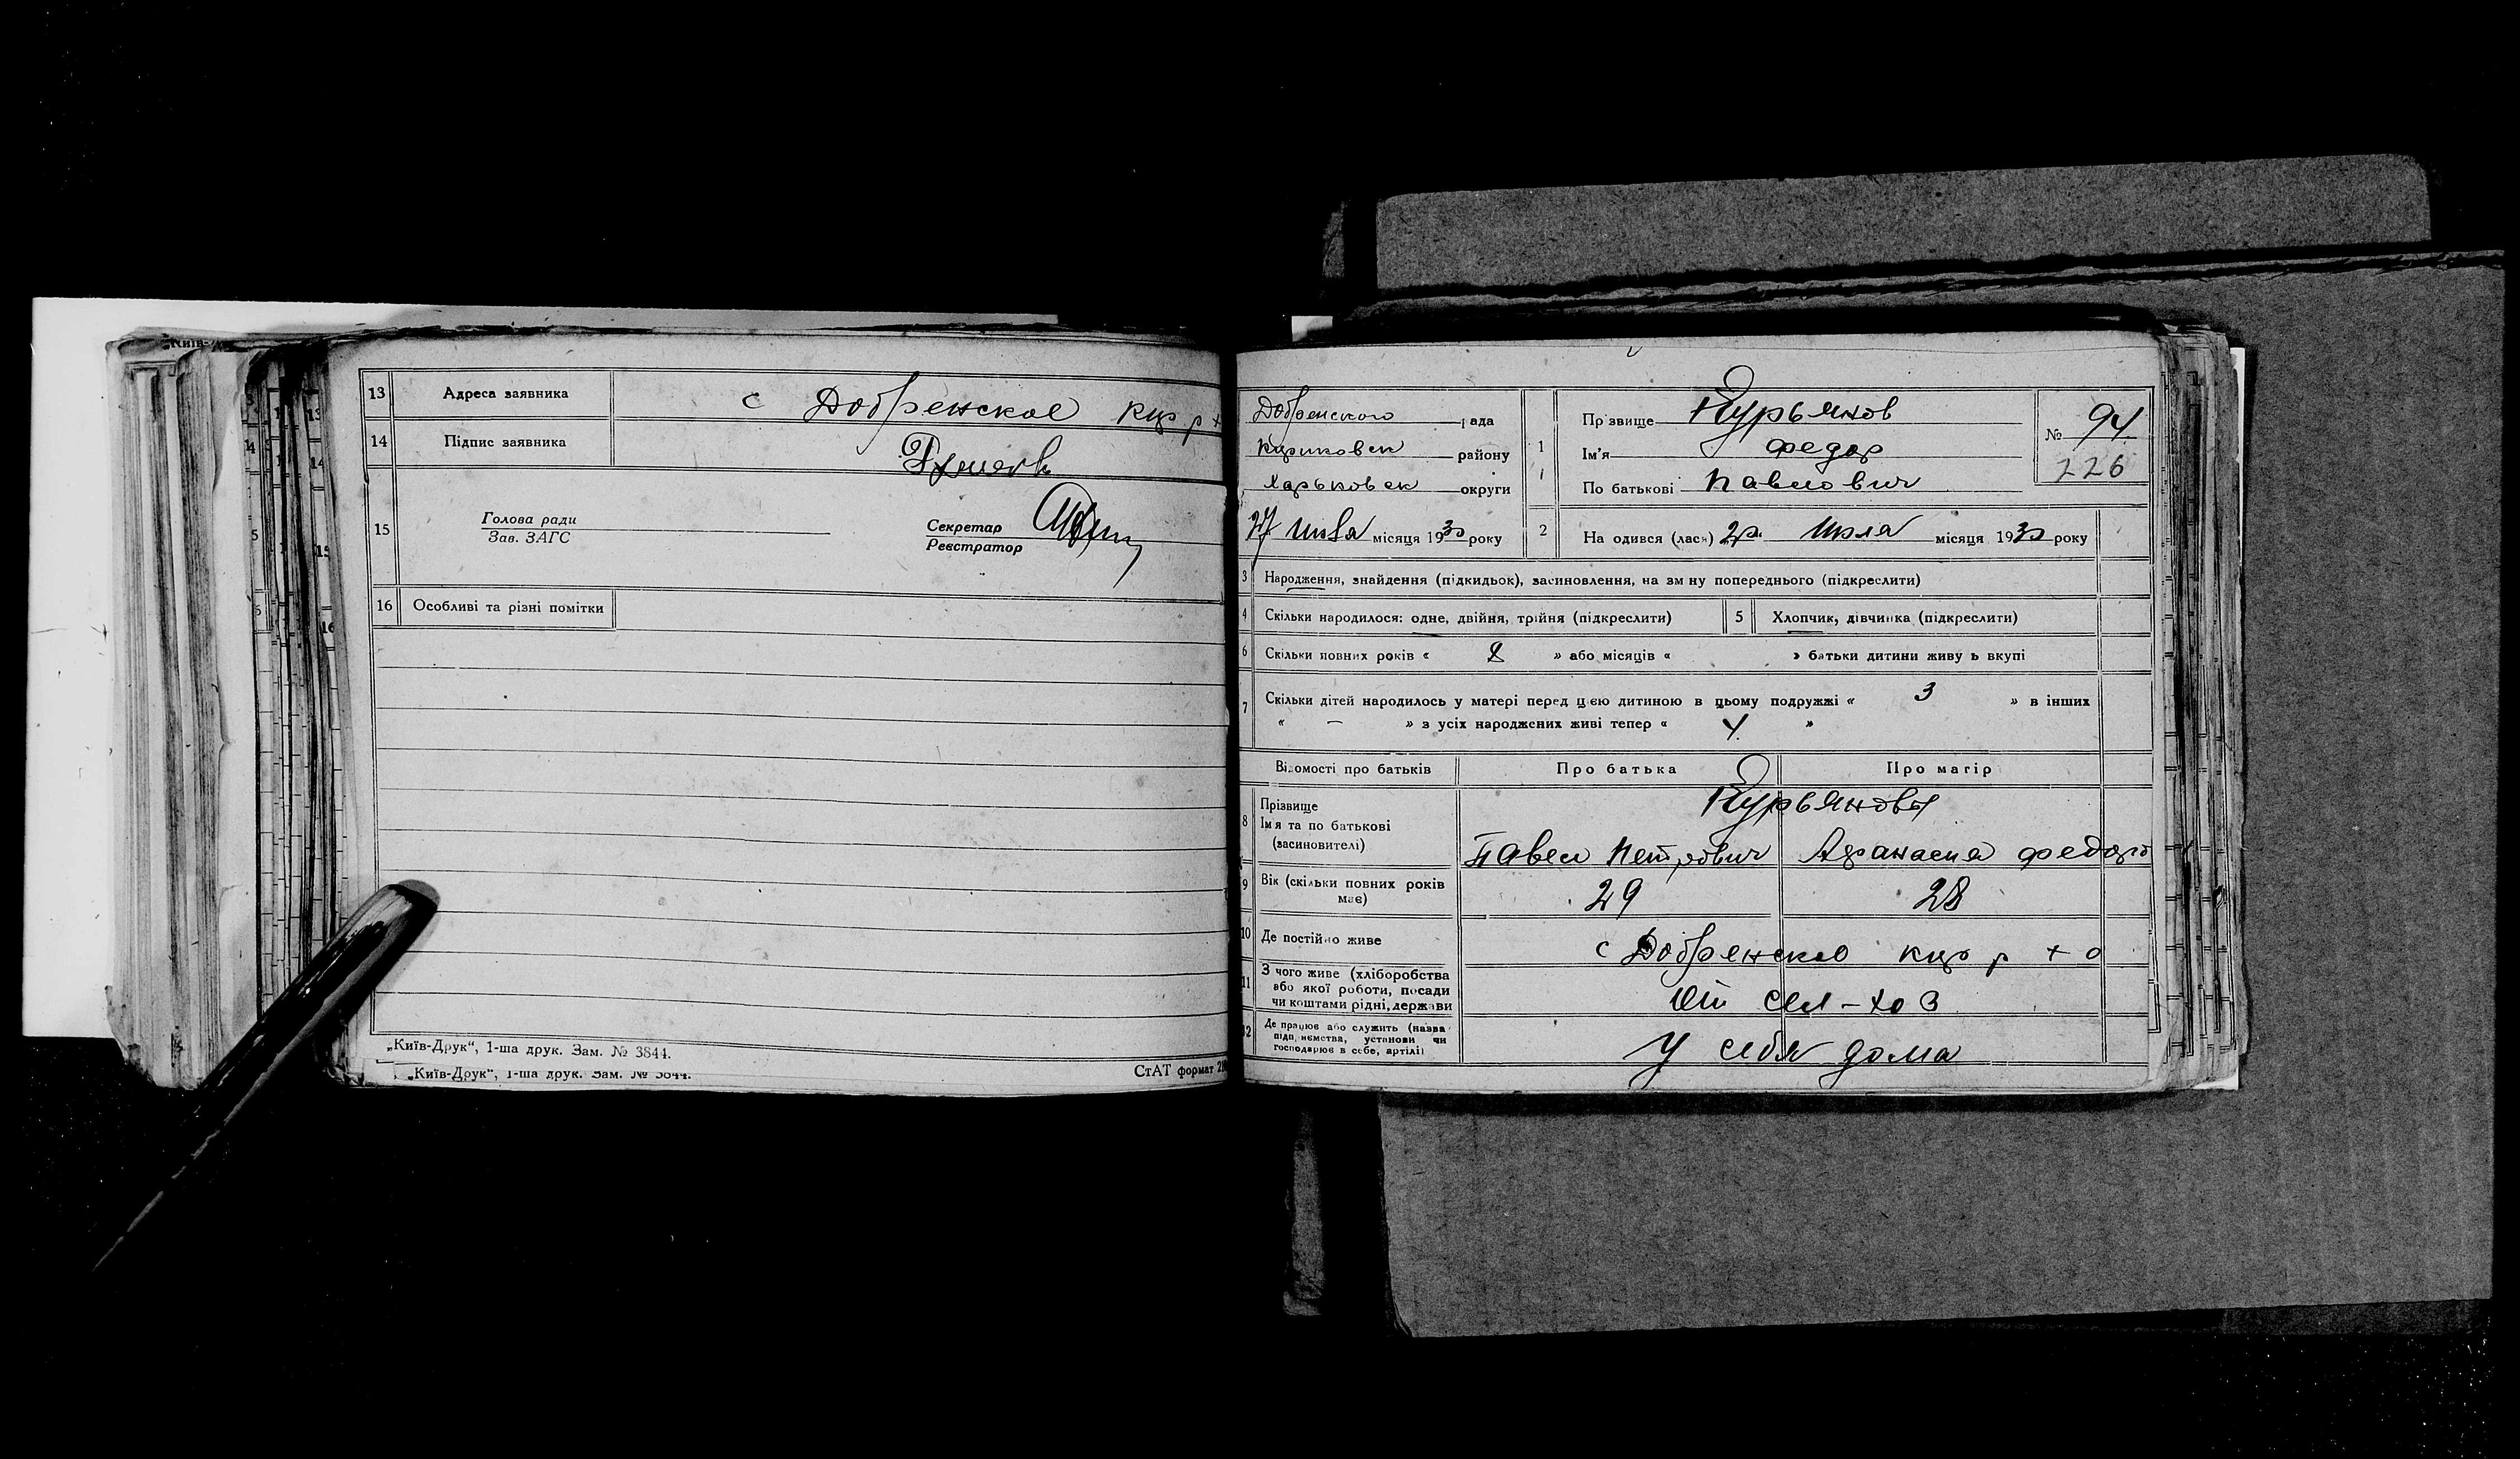 Київ-
13 Адреса заявника с Добренское кир р х
14 Підпис заявника
15 Голова ради
Зав. ЗАГС
Секретар
Реєстратор
16 Особливі та різні помітки
„Київ-Друк“, 1-ша друк. Зам. № 3844.
„Київ-Друк“, 1-ша друк. Зам. № 3844.
СтАТ формат
Добренского рада
района
Харьковск округи
27 місяця 1930 року
1 Прізвище Курьянов
Ім'я Федор
По батькові Павлович
№ 94
226
2 Народився (лась) июля місяця 1930 року
3 Народження, знайдення (підкидьок), засиновлення, на зміну попереднього (підкреслити)
4 Скільки народилося: одне, двійня, трійня (підкреслити) 5 Хлопчик, дівчинка (підкреслити)
6 Скільки повних років « 8 » або місяців « » батьки дитини живуть вкупі
7 Скільки дітей народилось у матері перед цією дитиною в цьому подружжі « 3 » в інших
« — » з усіх народжених живі тепер « 4 »
Відомості про батьків Про батька Про матір
8 Прізвище Курьяновы
Ім'я та по батькові
(засиновителі) Павел Петрович Афанасия Федоро
9 Вік (скільки повних років має) 29 28
10 Де постійно живе с Добренское кир р х о
11 З чого живе (хліборобства
або якої роботи, посади
чи коштами рідні, держави От сел-хоз
12 Де працює або служить (назва
підприємства, установи чи
господарює в себе, артілі) У себя дома